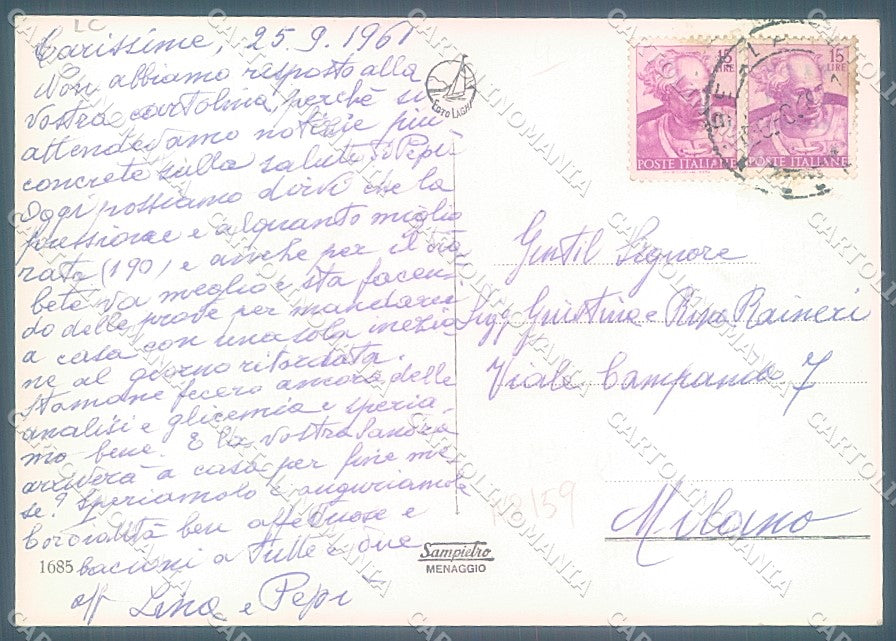 Carissime, 25.9.1961
Non abbiamo risposto alla
vostra cartolina, perchè si
attendevamo notizie più
concrete sulla salute di Pepi
Oggi possiamo dirvi che la
pressione e alquanto miglio
rata (190) e anche per il dia
bete va meglio e sta facen
do delle prove per mandarlo
a casa con una sola inezio
ne al giorno ritardata.
Stamane fecero ancora delle
analisi e glicemia e speria
mo bene. E la vostra Sandra
arriverà a casa per fine me
se? Speriamolo e auguriamole
Cordialità ben affettuose e
bacioni a tutte e due
aff Lina e Pepi
1685
EDTO LAGHI
Sampietro
MENAGGIO
15
LIRE
POSTE ITALIANE
15
LIRE
POSTE ITALIANE
Gentil Signore
Sigg Giustina e Rina Raineri
Viale Campania 7
Milano
LC
CARTOLINOMANIA